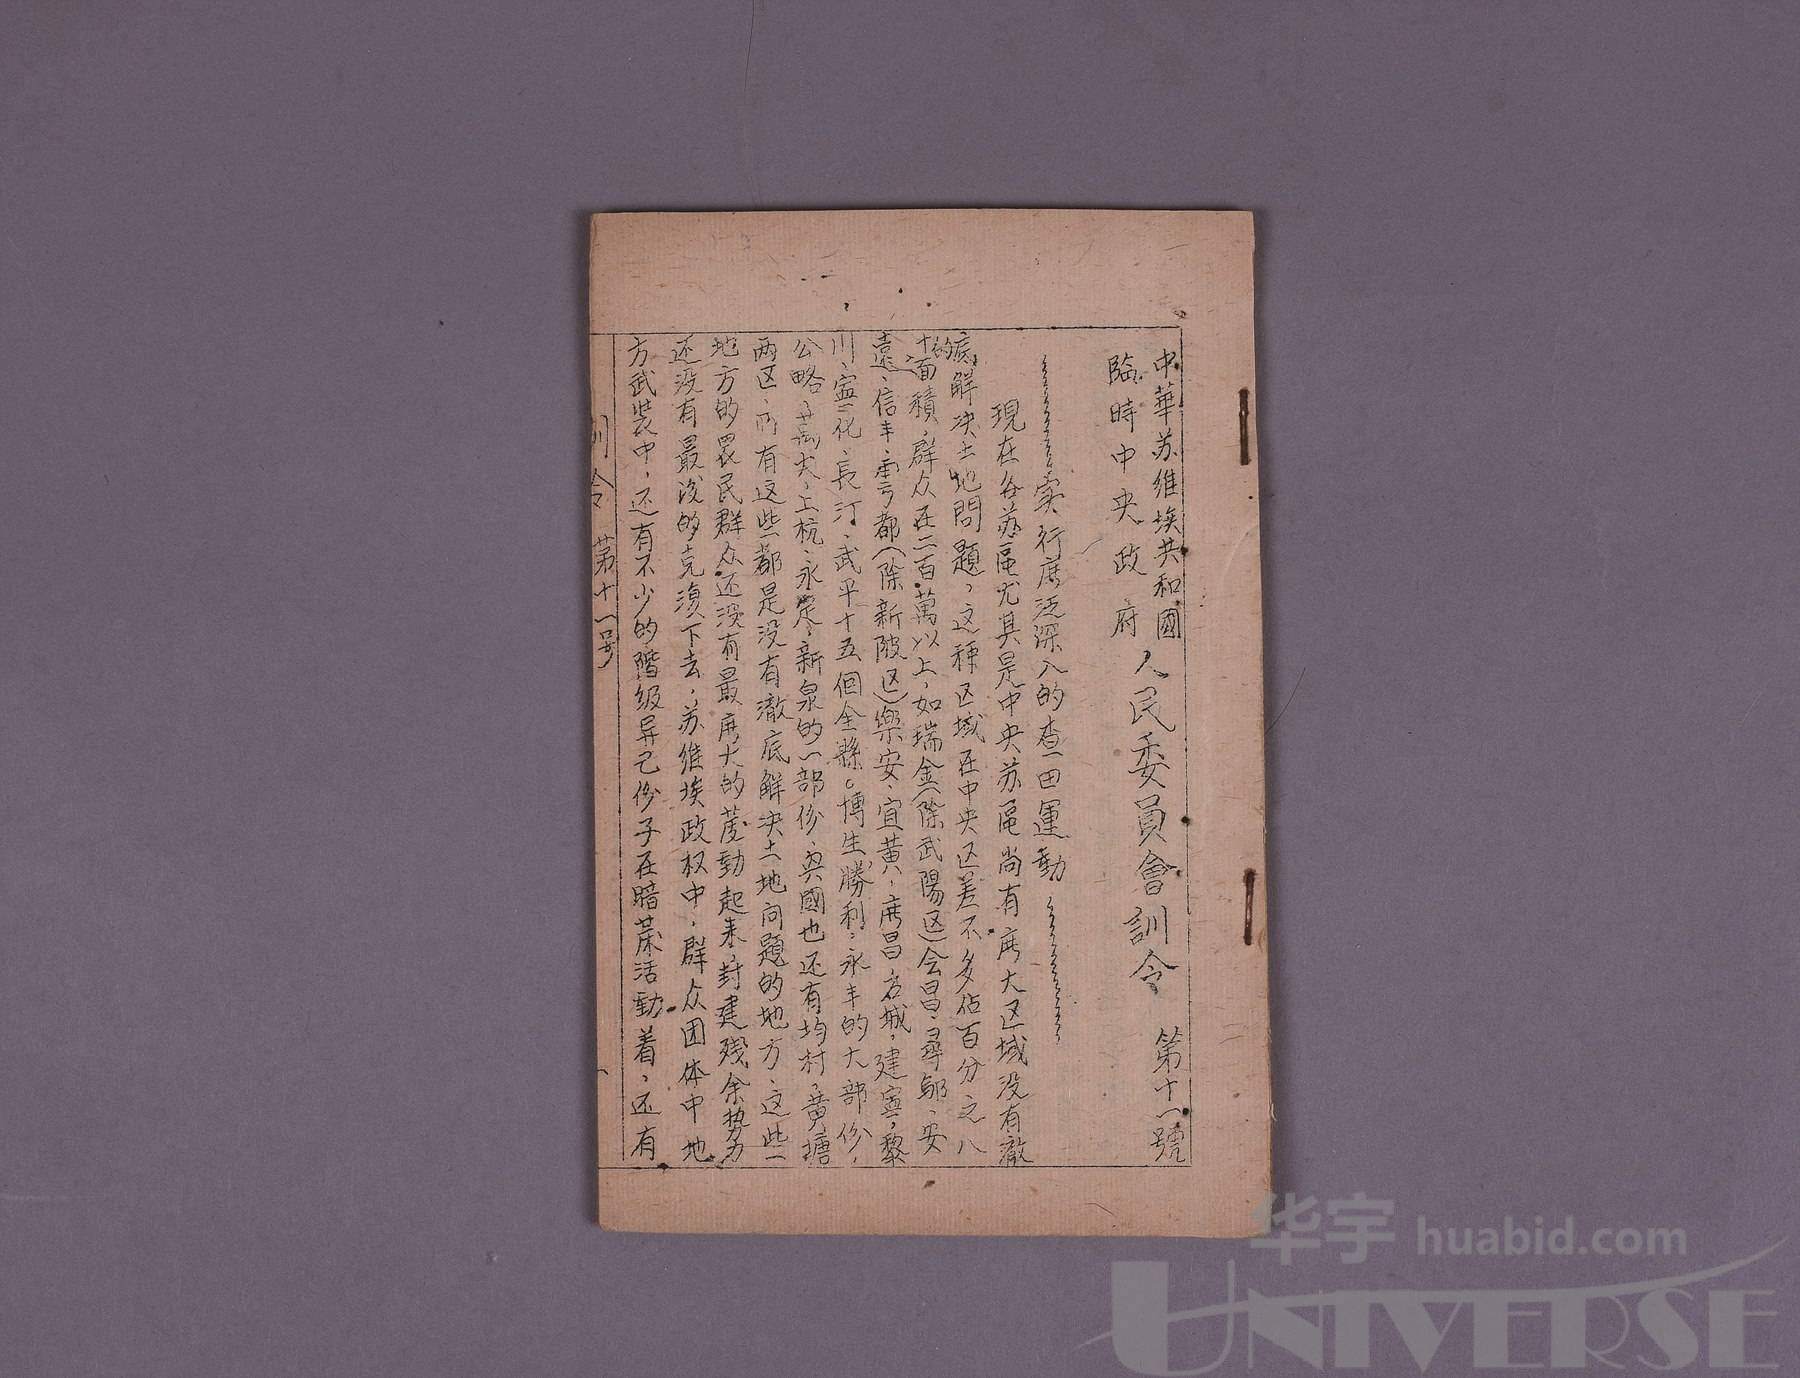 中華苏維埃共和國
臨時中央政府
人民委員會訓令
第十一號
实行广泛深入的查田運動
現在各苏區尤其是中央苏區尚有广大区域没有澈
底解决土地問題,这種区域在中央区差不多佔百分之八
十的面積,群众在二百萬以上,如瑞金(除武陽区)会昌、尋鄔、安
遠、信丰、雩都(除新陂区)樂安、宜黄、广昌、石城、建寧、黎
川、寧化、長汀、武平十五個全縣。博生勝利、永丰的大部份,
公略、萬太、上杭、永定、新泉的一部份、興國也还有均村,黄塘
两区,所有这些都是没有澈底解决土地问题的地方、这些
地方的農民群众还没有最广大的發動起来,封建残余势力
还没有最後的克復下去,苏維埃政权中,群众团体中地
方武裝中,还有不少的階級异己份子在暗藏活動着,还有
訓令 第十一号
一
华宇 huabid.com
UNIVERSE